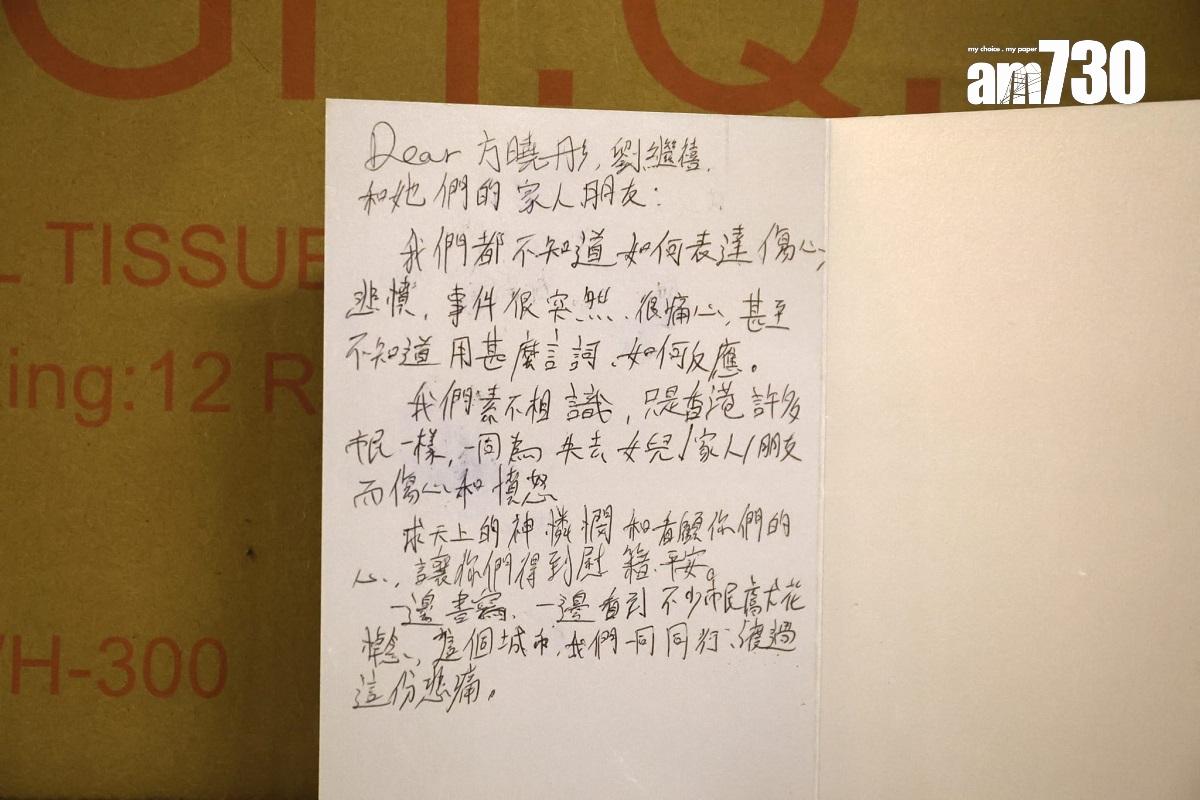 GH.Q.
my choice . my paper
am730
L TISSUE
ing:12 R
WH-300
Dear 方曉彤, 劉繼禧,
和她們的家人朋友：
我們都不知道如何表達傷心,
悲憤, 事件很突然、很痛心, 甚至
不知道用甚麼言詞、如何反應。
我們素不相識, 只是香港許多
市民一樣, 一同為失去女兒/家人/朋友
而傷心和憤怒
求天上的神憐憫和看顧你們的
心, 讓你們得到慰籍、平安。
一邊書寫、一邊看到不少市民獻花
悼念, 這個城市, 我們一同同行、渡過
這份悲痛。